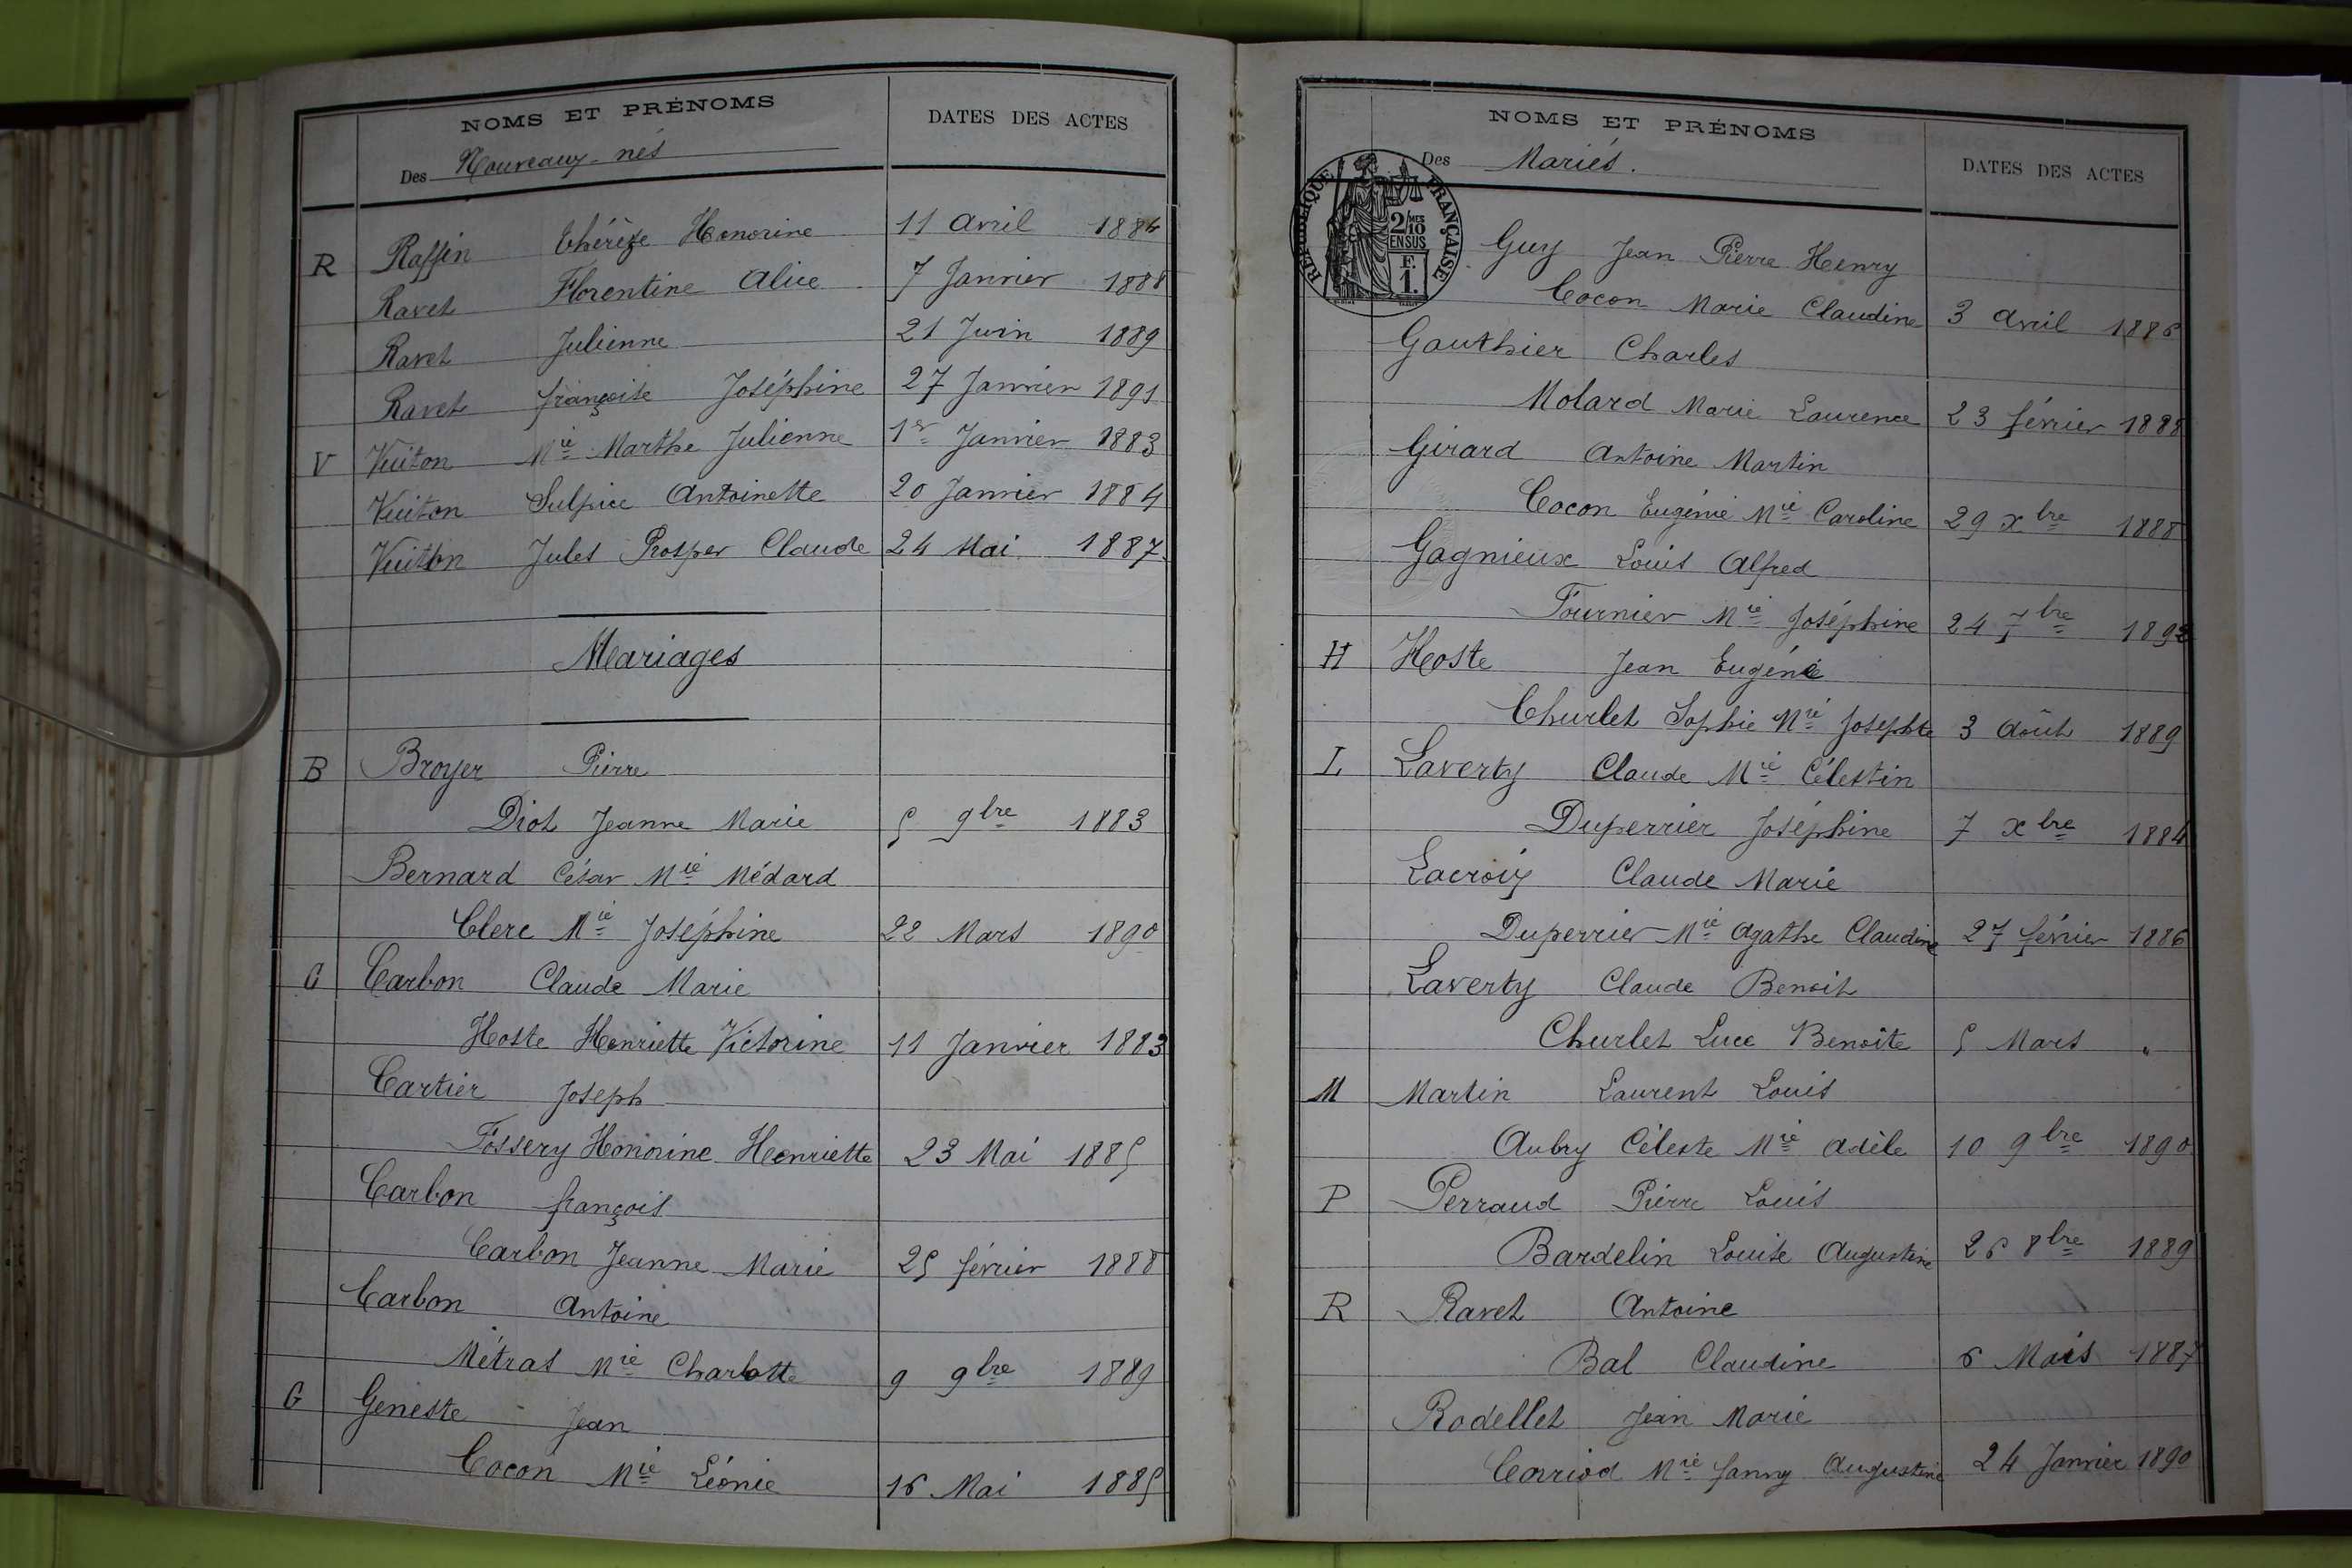 NOMS ET PRÉNOMS
DATES DES ACTES
Des Nouveaux-nés
R Raffin Thérèze Honorine 11 avril 1884
Ravet Florentine Alice 7 Janvier 1888
Ravet Julienne 21 Juin 1889
Ravet françoise Joséphine 27 Janvier 1891
V Vuiton Mie Marthe Julienne 1er Janvier 1883
Vuiton Sulpice Antoinette 20 Janvier 1884
Vuiton Jules Prosper Claude 24 Mai 1887
Mariages
B Broyer Pierre
Diot Jeanne Marie 5 9bre 1883
Bernard César Mie Médard
Clerc Mie Joséphine 22 Mars 1890
C Carbon Claude Marie
Hoste Henriette Victorine 11 Janvier 1883
Cartier Joseph
Fossery Honorine Henriette 23 Mai 1885
Carbon françois
Carbon Jeanne Marie 25 février 1888
Carbon Antoine
Métras Mie Charlotte 9 9bre 1889
G Geneste Jean
Cocon Mie Léonie 16 Mai 1885
NOMS ET PRÉNOMS
DATES DES ACTES
Des Mariés.
RÉPUBLIQUE FRANÇAISE
2/10 MES
EN SUS
F.
1.
Guy Jean Pierre Henry
Cocon Marie Claudine 3 avril 1886
Gauthier Charles
Molard Marie Laurence 23 février 1888
Girard Antoine Martin
Cocon Eugénie Mie Caroline 29 xbre 1888
Gagnieux Louis Alfred
Fournier Mie Joséphine 24 7bre 1892
H Hoste Jean Eugéne
Churlet Sophie Mie Josephte 3 Août 1889
L Laverty Claude Mie Célestin
Duperrier Joséphine 7 xbre 1884
Lacroix Claude Marie
Duperrier Mie Agathe Claudine 27 février 1886
Laverty Claude Benoit
Churlet Luce Benoîte 5 Mars "
M Martin Laurent Louis
Aubry Céleste Mie Adèle 10 9bre 1890
P Perraud Pierre Louis
Bardelin Louise Augustine 26 8bre 1889
R Ravet Antoine
Bal Claudine 6 Mars 1887
Rodellet Jean Marie
Corriod Mie fanny Augustine 24 Janvier 1890